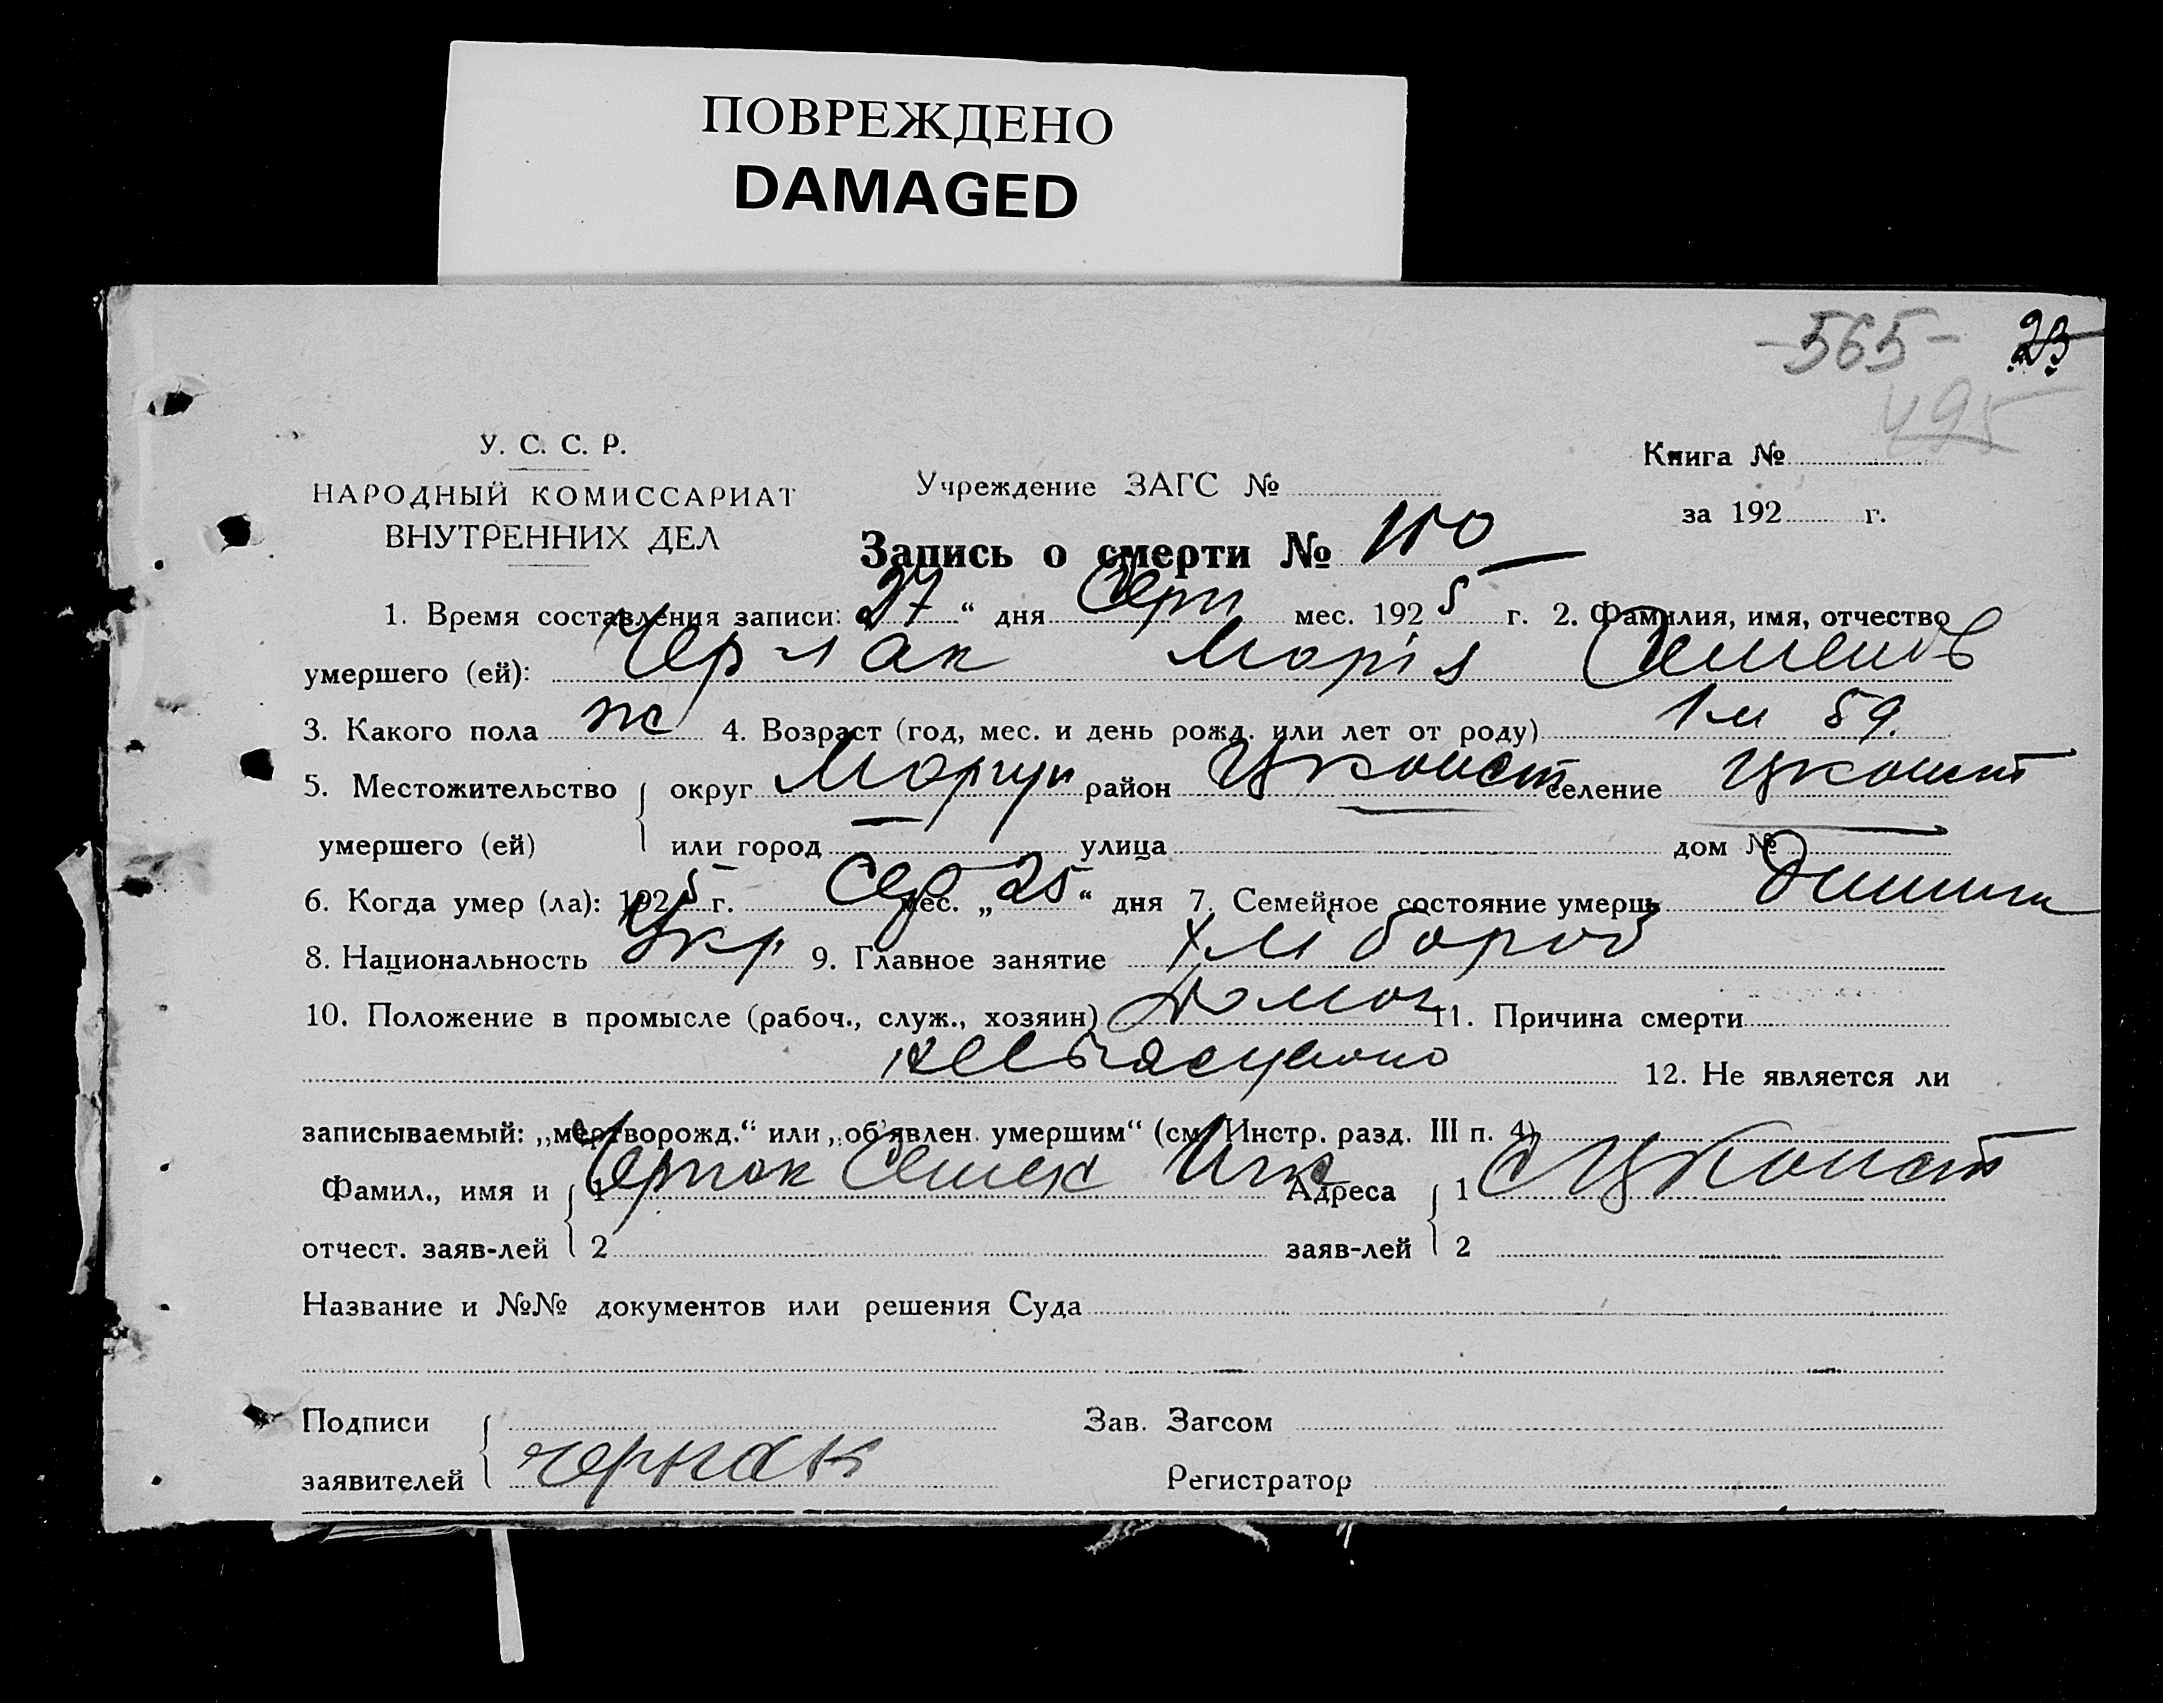 ПОВРЕЖДЕНО
DAMAGED
-565- 23
495
У. С. С. Р.
НАРОДНЫЙ КОМИССАРИАТ
ВНУТРЕННИХ ДЕЛ
Учреждение ЗАГС №
Книга №
за 192 г.
Запись о смерти №
1. Время составления записи: „27“ дня Серп мес. 1925 г. 2. Фамилия, имя, отчество
умершего (ей): Чернак Марія Семенов
3. Какого пола ж 4. Возраст (год, мес. и день рожд. или лет от роду) 1 м 5 д.
5. Местожительство умершего (ей) округ Маріуп район Цконст селение Цконст
или город улица дом №
6. Когда умер (ла): 1925 г. Сер мес. „25“ дня 7. Семейное состояние умерш
8. Национальность Укр 9. Главное занятие хлібороб
10. Положение в промысле (рабоч., служ., хозяин) 11. Причина смерти
12. Не является ли
записываемый: „мертворожд.“ или „об'явлен умершим“ (см. Инстр. разд. III п. 4)
Фамил., имя и отчест. заяв-лей 1 Чернак Семен Адреса заяв-лей 1 с Цконст
2 2
Название и №№ документов или решения Суда
Подписи заявителей чернак
Зав. Загсом
Регистратор